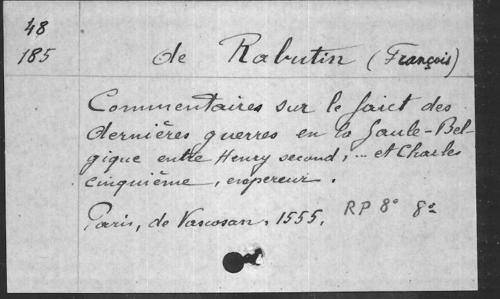 48
185
de Rabutin (François)
Commentaires sur le faict des
dernières guerres en la Gaule-Bel-
gique entre Henry second, ... et Charles
cinquième, empereur.
Paris, de Vascosan, 1555. RP 8° 8°